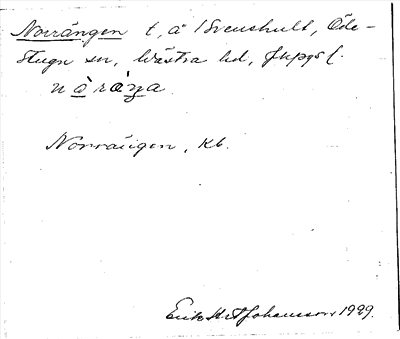 Norrängen t, å Svenshult, Öde-
stugu sn, Västra hd, Jkpgs l.
nòràŋa
Norrängen, Kb.
Erik H Johansson 1929.